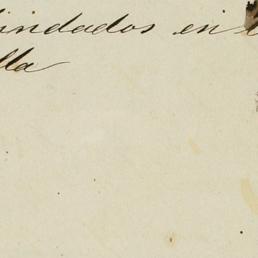 lindados en
lla